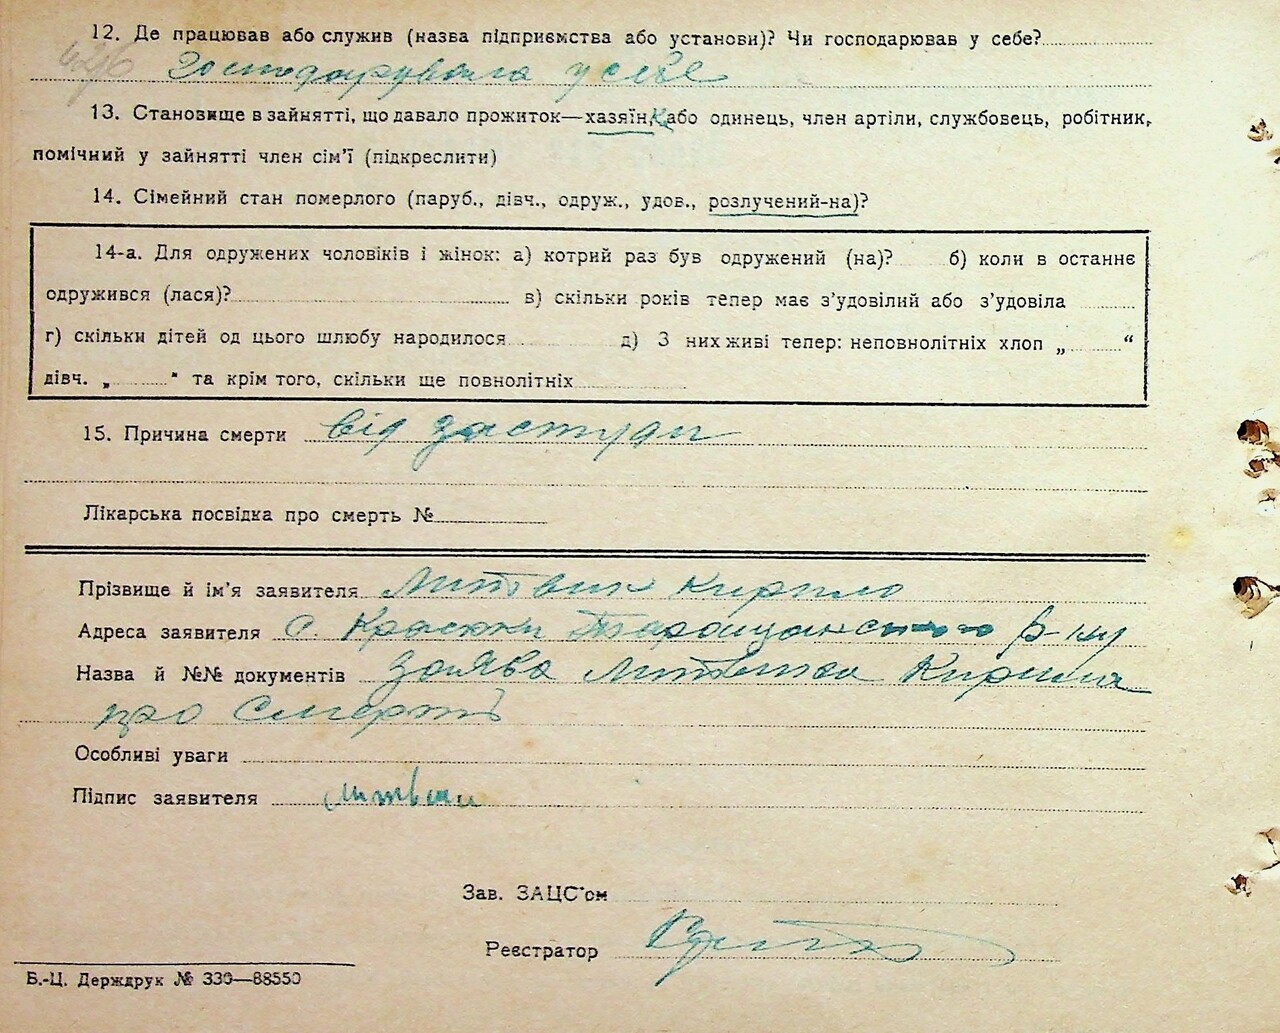 12. Де працював або служив (назва підприємства або установи)? Чи господарював у себе?
426 Господарувала у себе
13. Становище в зайнятті, що давало прожиток—хазяїн, або одинець, член артіли, службовець, робітник,
помічний у зайнятті член сім'ї (підкреслити)
14. Сімейний стан померлого (паруб., дівч., одруж., удов., розлучений-на)?
14-а. Для одружених чоловіків і жінок: а) котрий раз був одружений (на)? б) коли в останнє
одружився (лася)? в) скільки років тепер має з'удовілий або з'удовіла
г) скільки дітей од цього шлюбу народилося д) З них живі тепер: неповнолітніх хлоп „ “
дівч. „ “ та крім того, скільки ще повнолітніх
15. Причина смерти від застуди
Лікарська посвідка про смерть №
Прізвище й ім'я заявителя Литвин Кирило
Адреса заявителя с. Таращанського р-ну
Назва й №№ документів Заява Литвина Кирила
про смерть
Особливі уваги
Підпис заявителя Литвин
Зав. ЗАЦС'ом
Реєстратор
Б.-Ц. Держдрук № 330—88550